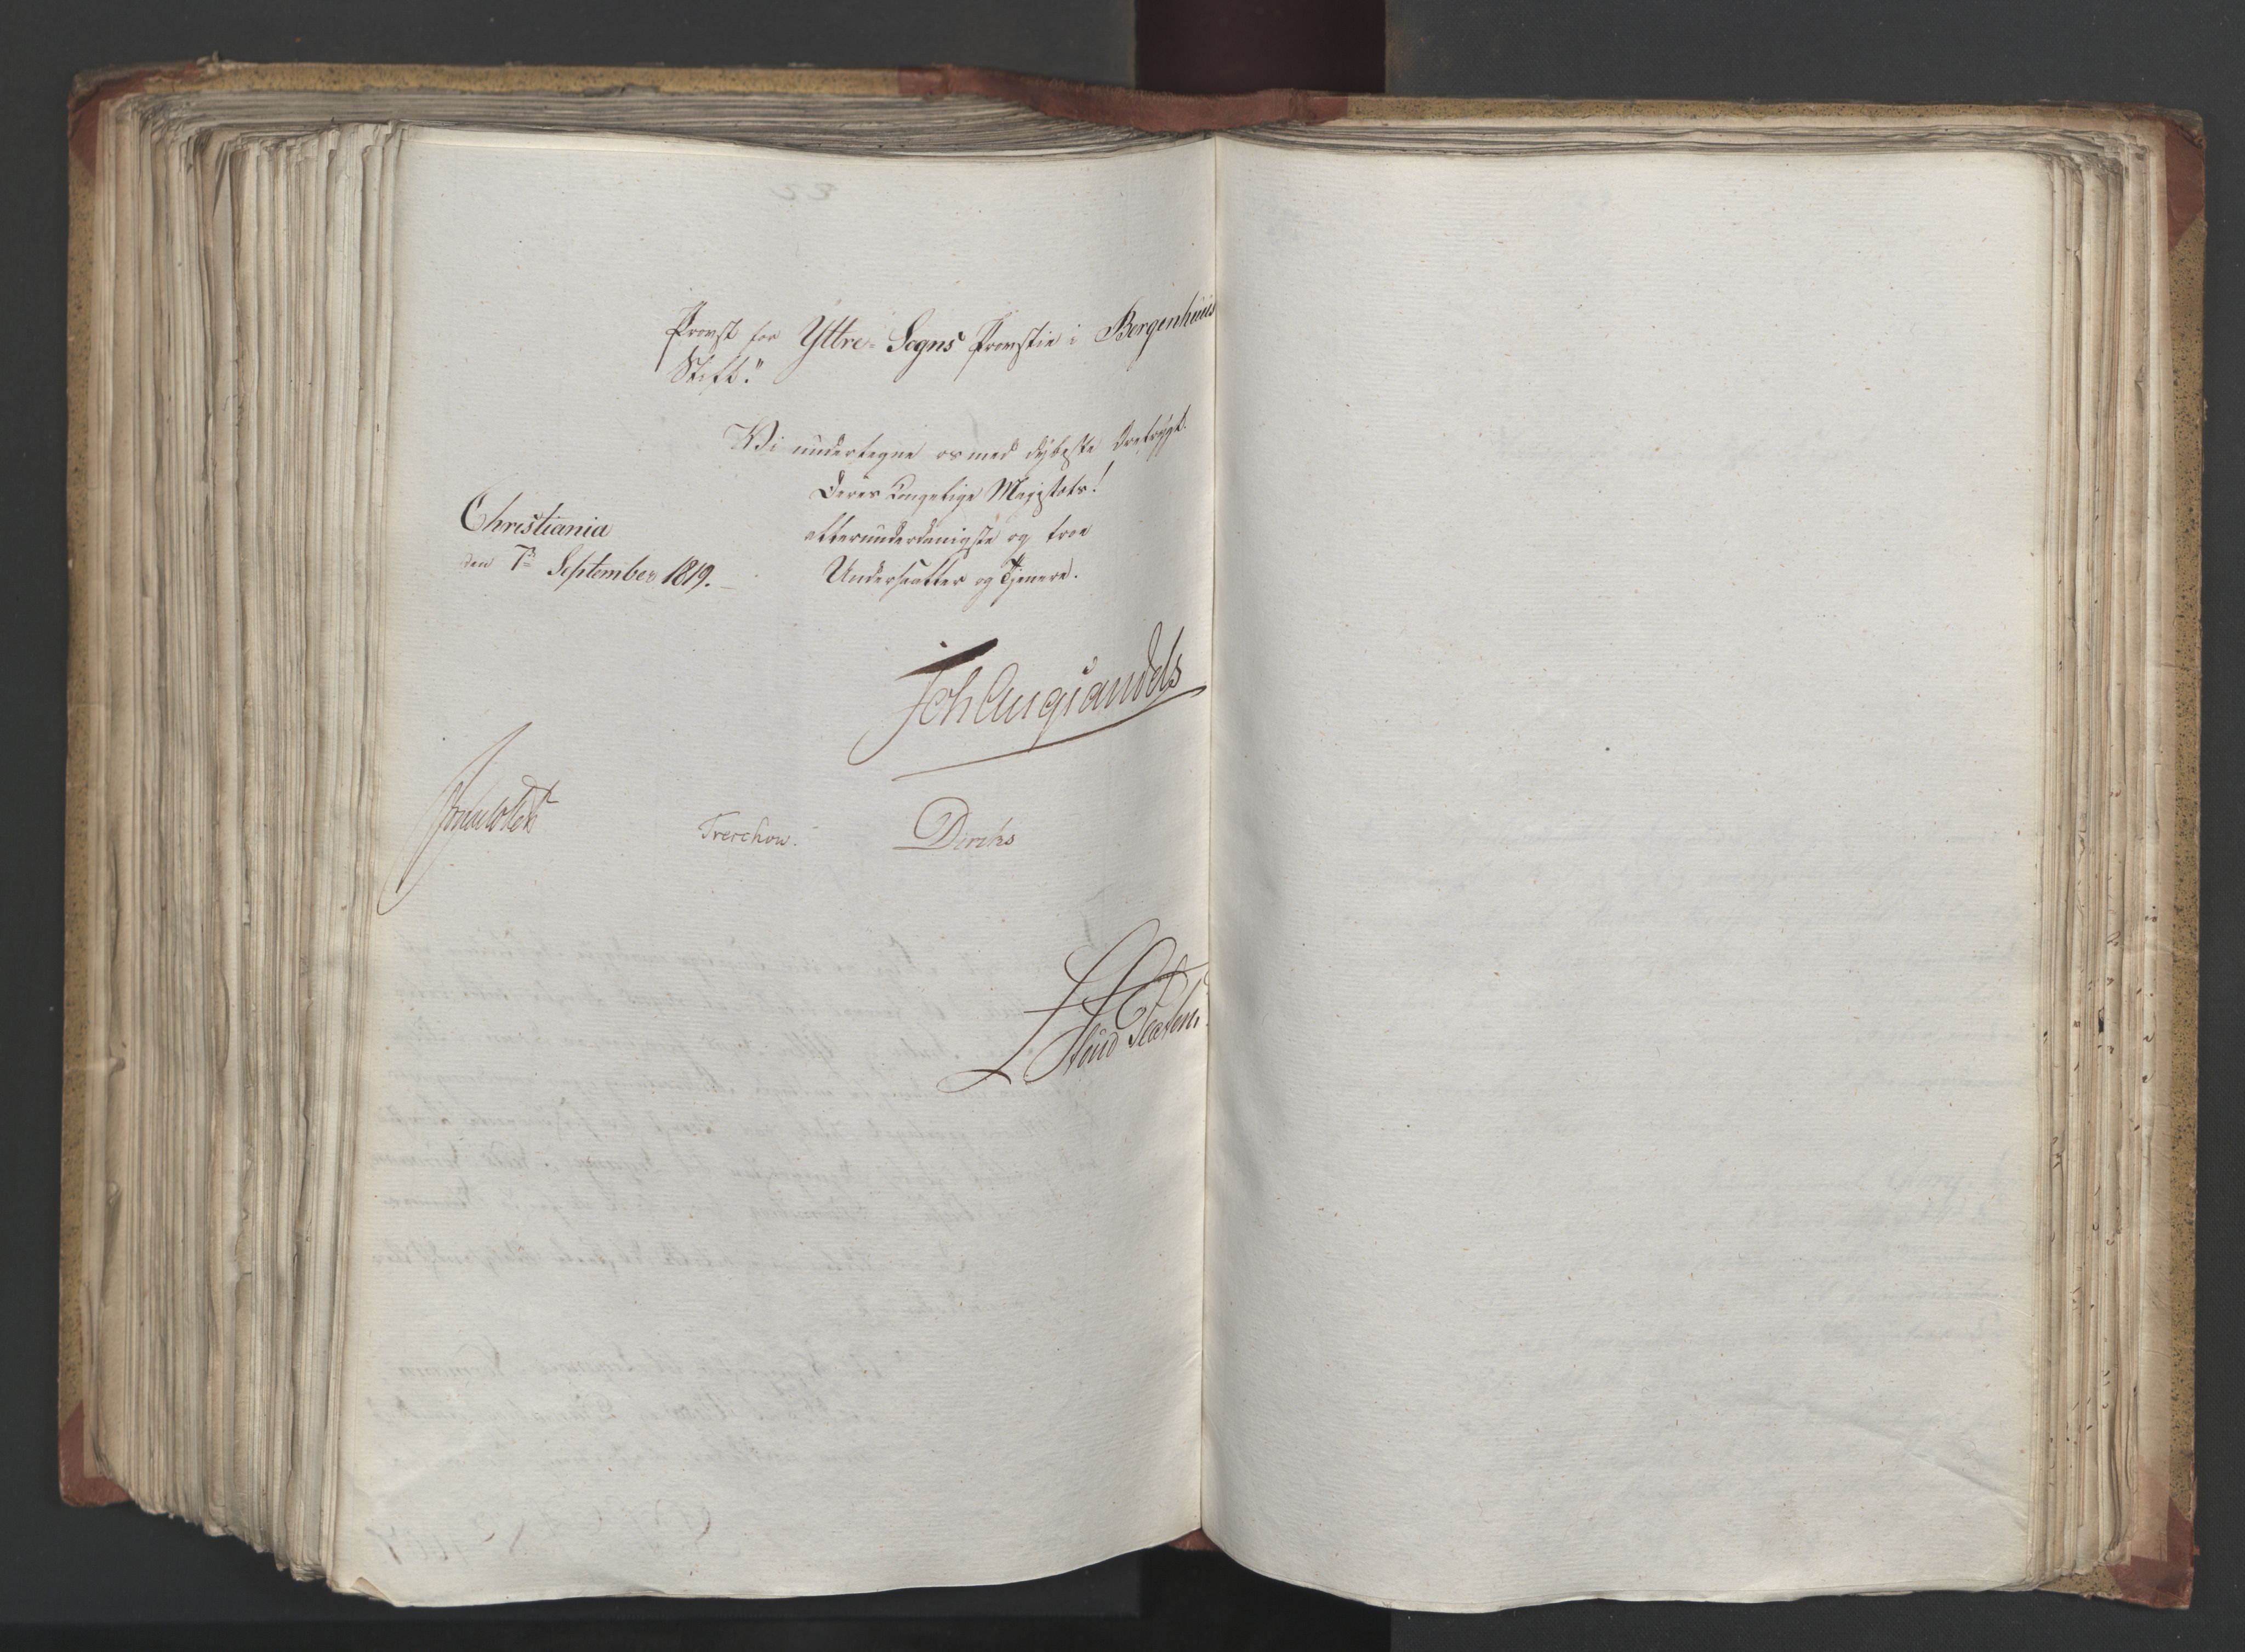 Provst for Yttre-Sogns Provstie i Bergenhuus
Stift."
Vi undertegne os med dybeste Ærefrygt.
Deres Kongelige Majestæts!
allerunderdanigste og troe
Undersaatter og Tjenere.
Christiania
den 7de September 1819.
Joh Aug Sandels
Treschow.
Diriks